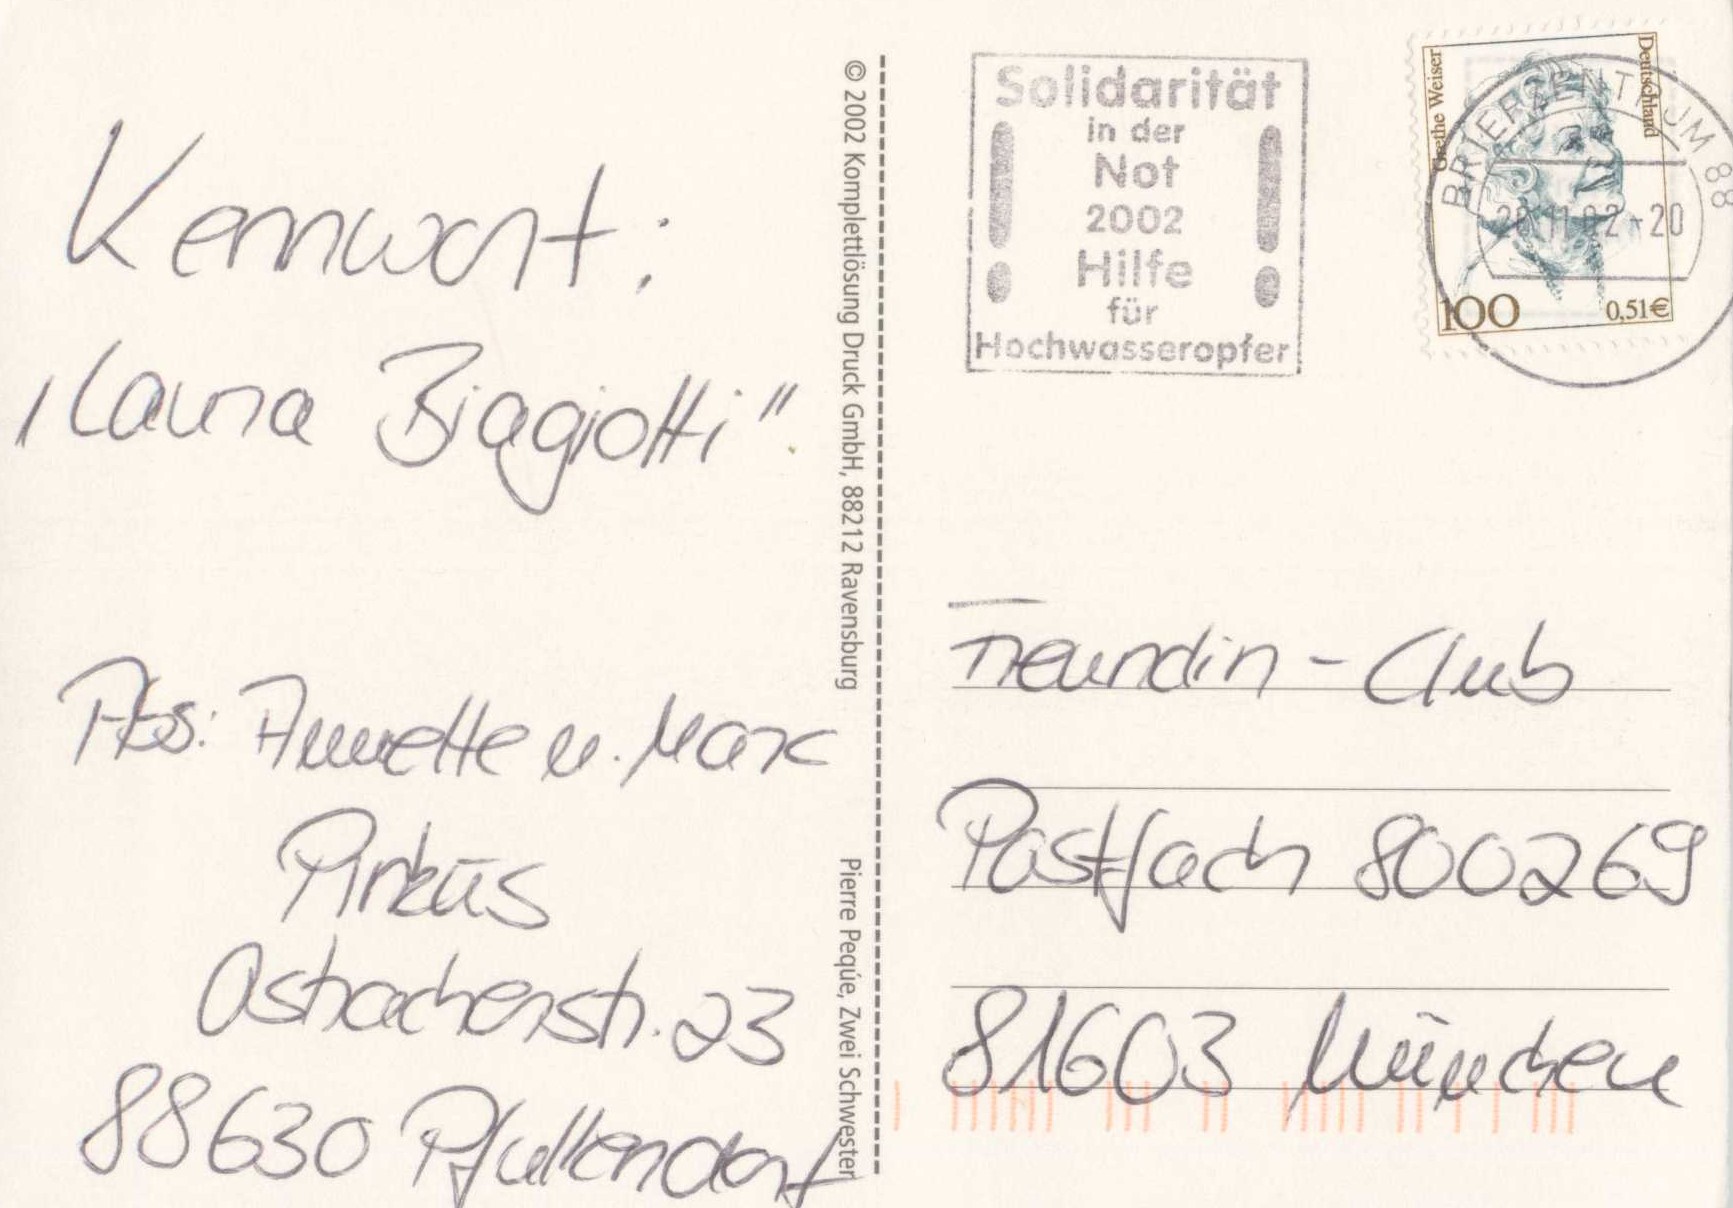 Kennwort:
"Laura Biagiotti"
Abs: Annette u. Marc
Pirkūs
Ostracherstr. 23
88630 Pfullendorf
© 2002 Komplettlösung Druck GmbH, 88212 Ravensburg
Pierre Peqúe, Zwei Schwestern
Solidarität
in der
Not
2002
Hilfe
für
Hochwasseropfer
Grethe Weiser
Deutschland
100
0,51€
BRIEFZENTRUM 88
11.02-20
Freundin-Club
Postfach 800269
81603 München